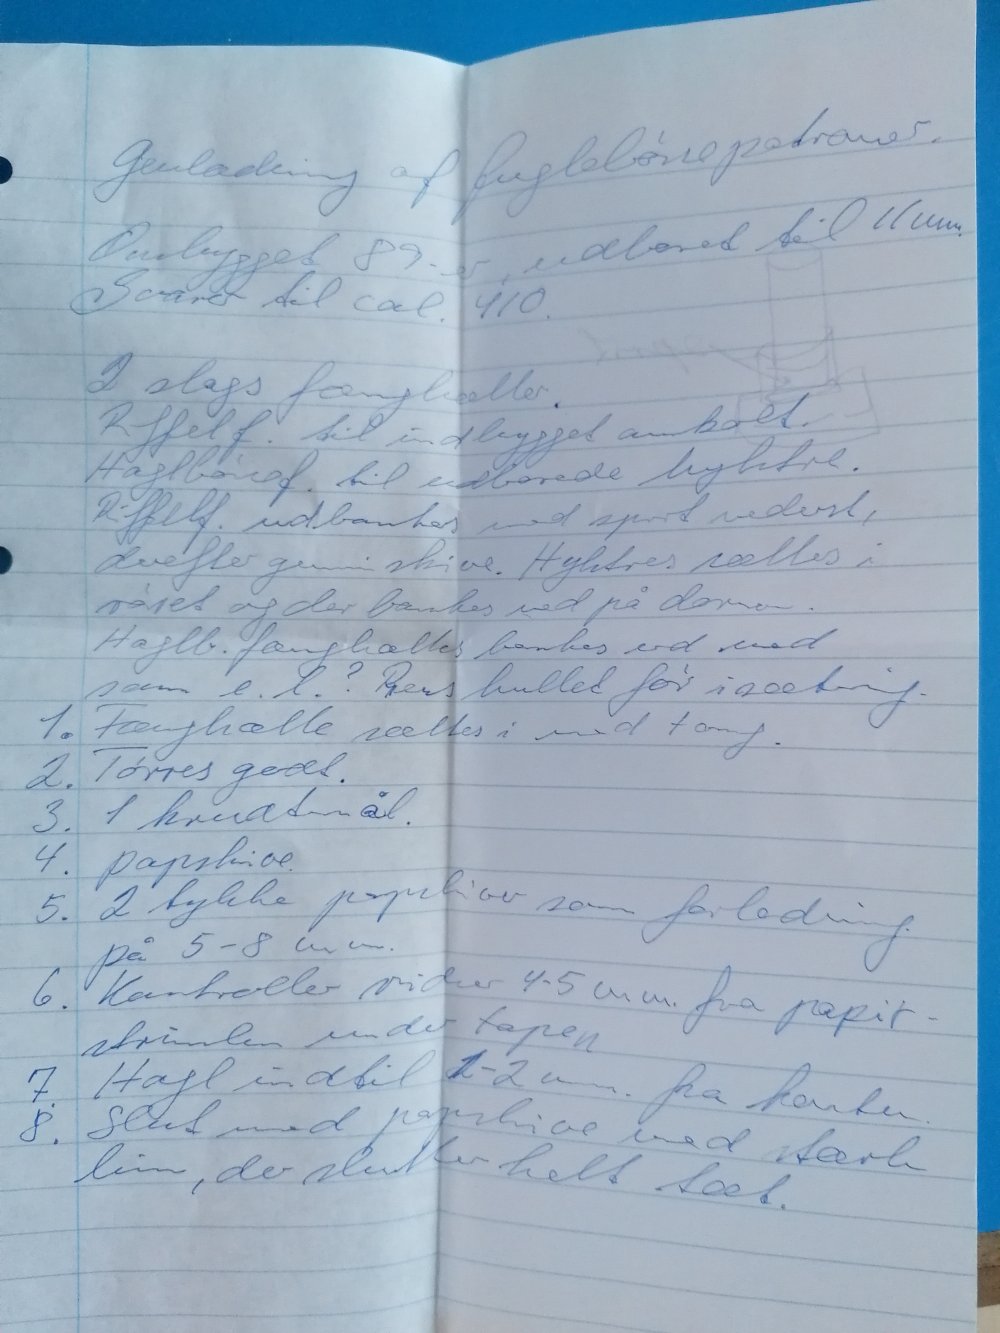 Genladning af fuglebössepatroner.
Ombygget 89-er, udboret til 11 mm.
Svarer til cal. 410.
2 slags fænghætter.
Riffelf. til indbygget ambolt.
Haglbössef. til udborede hylstre.
Riffelf. udbankes med sprit nederst,
derefter gummiskive. Hylstres sættes i
röret og der bankes ned på dornen.
Haglb. fænghætte bankes ud med
söm e. l.? Rens hullet för isætning.
1. Fænghætte sættes i med tang.
2. Törres godt.
3. 1 krudtmål.
4. papskive.
5. 2 tykke papskiver som forladning
på 5-8 mm.
6. Kontroller vidne 4-5 mm. fra papir-
strimlen under tapen
7. Hagl indtil 1-2 mm. fra kanten.
8. Slut med papskive med stærk
lim, der slutter helt tæt.